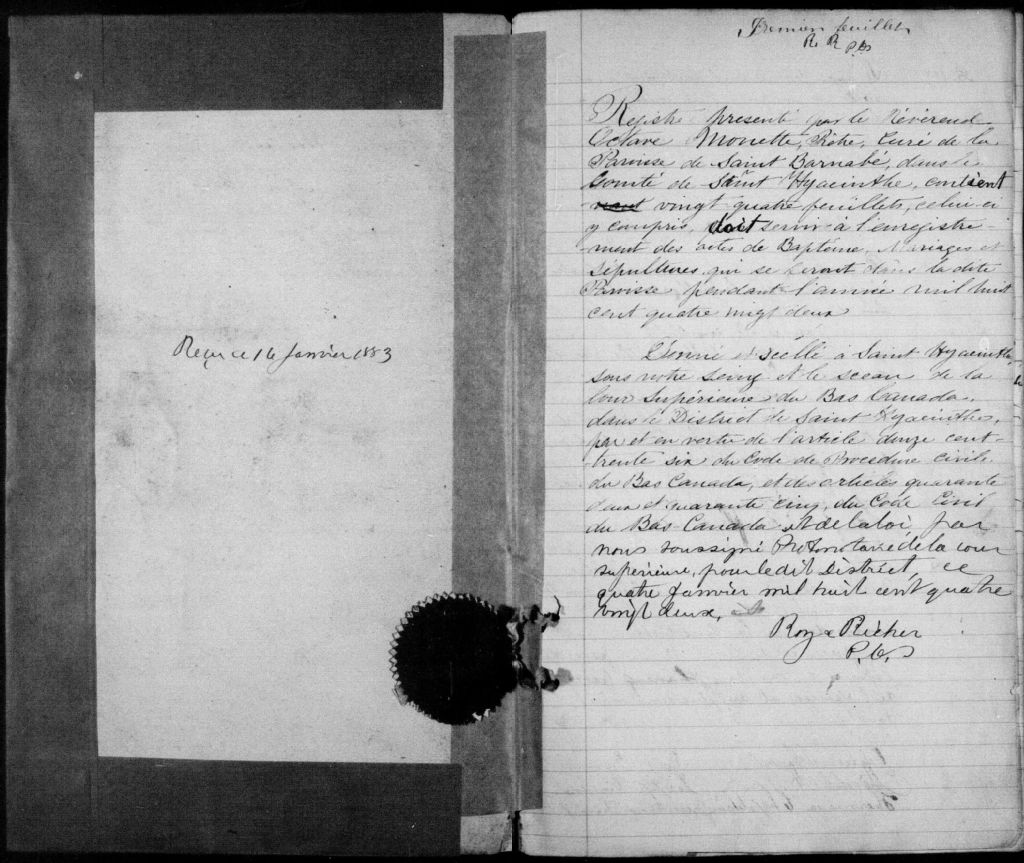 Reçu ce 16 Janvier 1883
Premier feuillet
R R P.C.S
Registre présenté par le Révérend
Octave Monette, Prêtre, Curé de la
Paroisse de Saint Barnabé, dans le
Comté de Saint Hyacinthe, contient
vingt quatre feuillets, celui-ci
y compris, doit servir à l'enregistre-
ment des actes de Baptême, Mariages et
Sépultures qui se feront dans la dite
Paroisse pendant l'année mil huit
cent quatre vingt deux
Donné et Scellé à Saint Hyacinthe,
sous notre Seing et le sceau de la
Cour Supérieure du Bas Canada,
dans le District de Saint Hyacinthe,
par et en vertu de l'article douze cent-
trente six du Code de Procédure Civile
du Bas Canada, et des articles quarante
deux et quarante cinq, du Code Civil
du Bas-Canada et de la loi, par
nous soussigné Protonotaire de la cour
supérieure, pour le dit District, ce
quatre Janvier mil huit cent quatre
vingt deux,
Roy & Richer
P.C.S